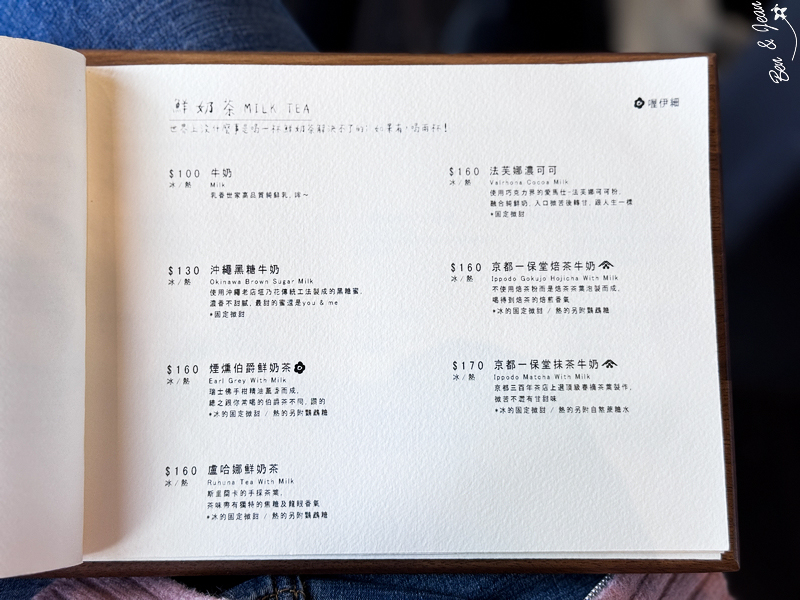 Ben & Jean
鮮奶茶 MILK TEA
喔伊細
世界上沒什麼事是喝一杯鮮奶茶解決不了的；如果有，喝兩杯！
$100 牛奶
冰/熱 Milk
乳香世家高品質純鮮乳，哞～
$130 沖繩黑糖牛奶
冰/熱 Okinawa Brown Sugar Milk
使用沖繩老店垣乃花傳統工法製成的黑糖蜜，
濃香不甜膩，最甜的蜜還是you & me
*固定微甜
$160 煙燻伯爵鮮奶茶
冰/熱 Earl Grey With Milk
瑞士佛手柑精油薰身而成，
總之跟你常喝的伯爵茶不同，讚的
*冰的固定微甜 / 熱的另附鸚鵡糖
$160 盧哈娜鮮奶茶
冰/熱 Ruhuna Tea With Milk
斯里蘭卡的手採茶葉，
茶味帶有獨特的焦糖及龍眼香氣
*冰的固定微甜 / 熱的另附鸚鵡糖
$160 法芙娜濃可可
冰/熱 Valrhona Cocoa Milk
使用巧克力界的愛馬仕-法芙娜可可粉，
融合純鮮奶，入口微苦後轉甘，跟人生一樣
*固定微甜
$160 京都一保堂焙茶牛奶
冰/熱 Ippodo Gokujo Hojicha With Milk
不使用焙茶粉而是焙茶茶葉泡製而成，
喝得到焙茶的焙煎香氣
*冰的固定微甜 / 熱的另附鸚鵡糖
$170 京都一保堂抹茶牛奶
冰/熱 Ippodo Matcha With Milk
京都三百年茶店上選頂級春摘茶葉製作，
微苦不澀有甘甜味
*冰的固定微甜 / 熱的另附自熬蔗糖水